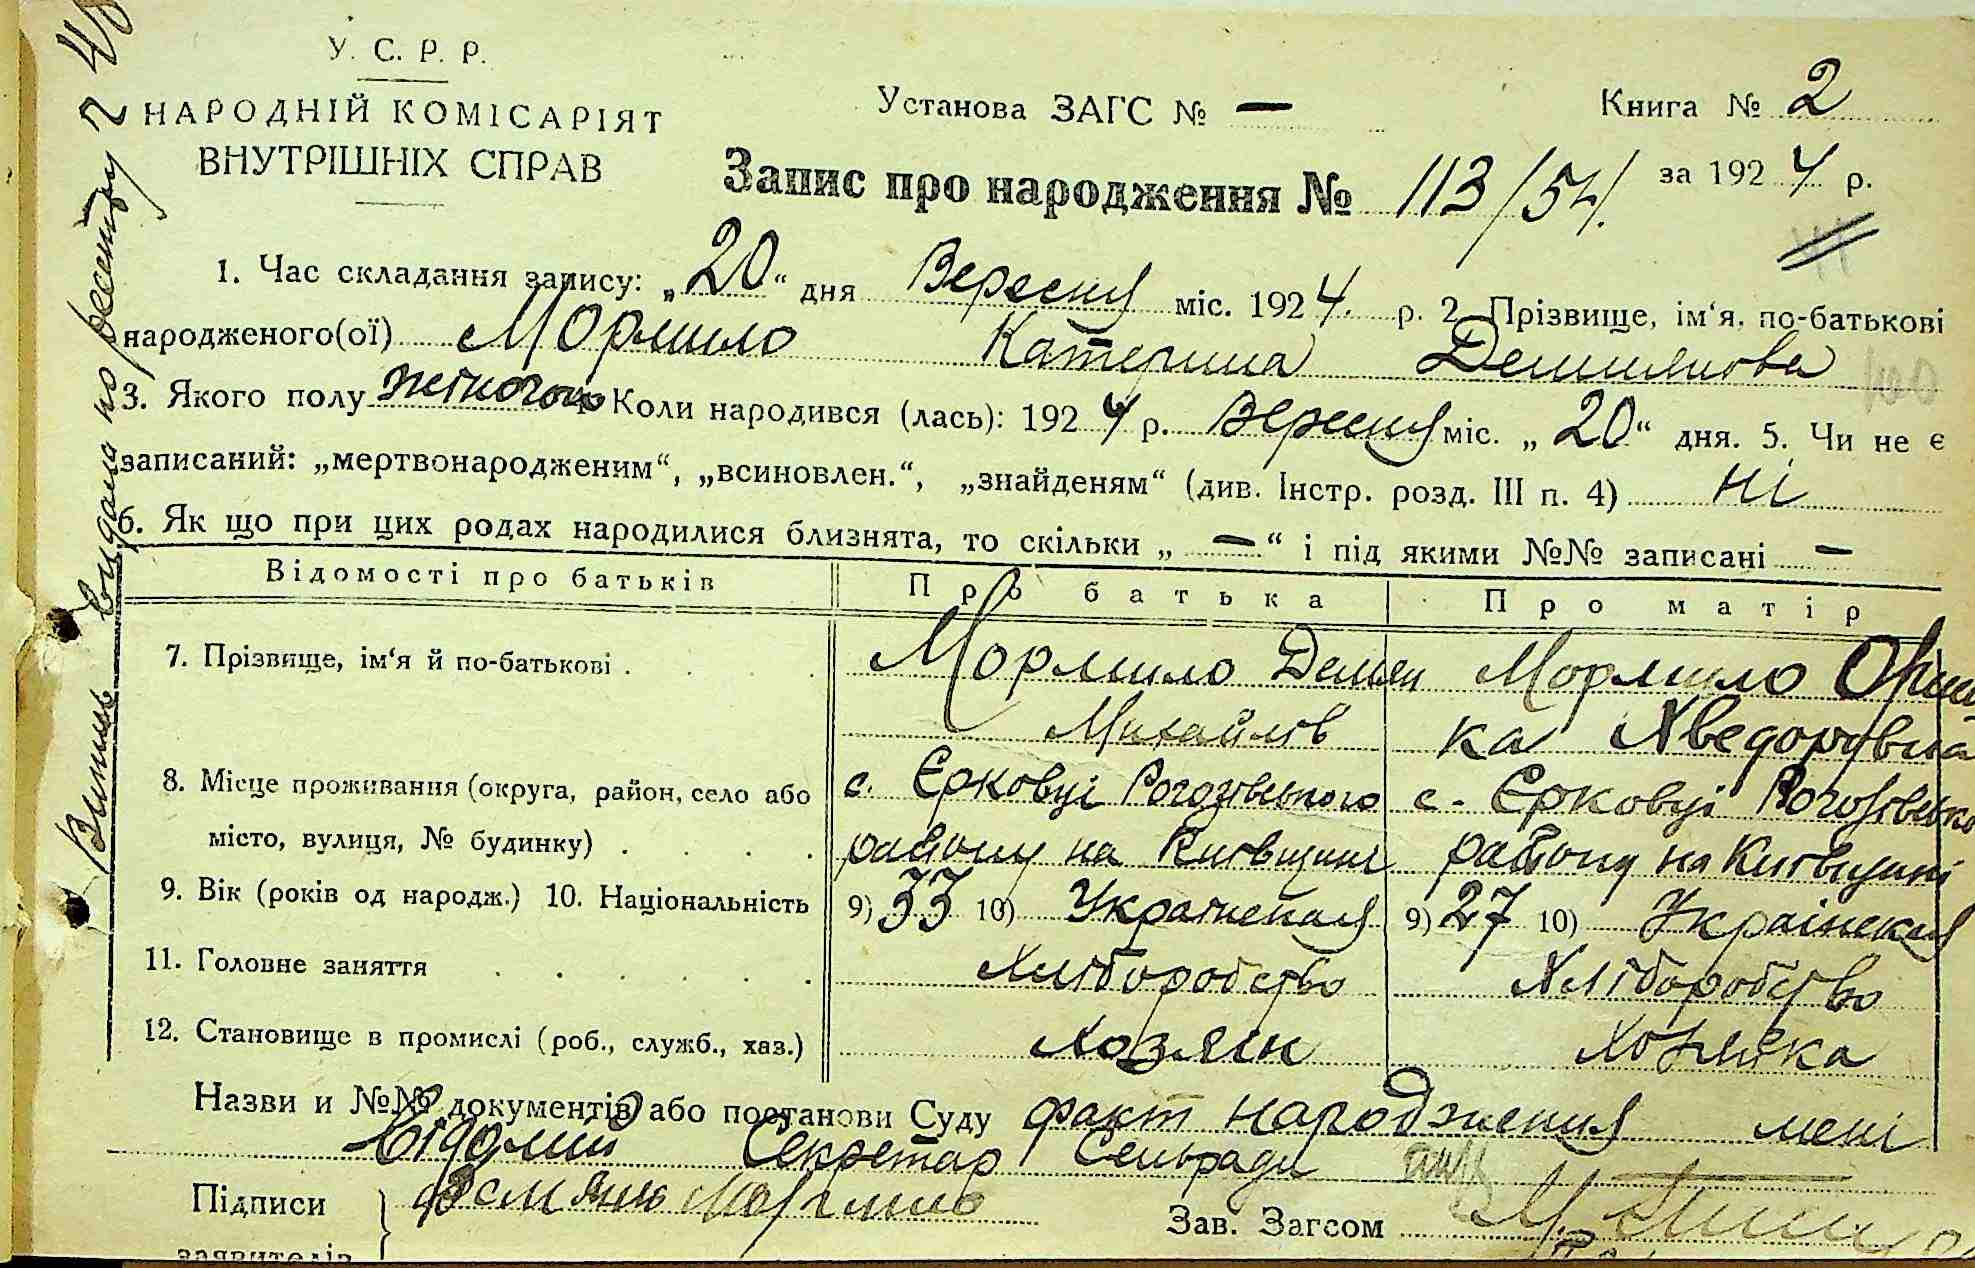 У. С. Р. Р.
НАРОДНІЙ КОМІСАРІЯТ
ВНУТРІШНІХ СПРАВ
Установа ЗАГС № —
Книга № 2
Запис про народження № 113/54.
за 1924 р.
1. Час складання запису: „20“ дня Вересня міс. 1924. р. 2. Прізвище, ім‘я, по-батькові
народженого(ої) Мормило Катерина Демянова
3. Якого полу жіночого Коли народився (лась): 1924 р. Вересня міс. „20“ дня. 5. Чи не є
записаний: „мертвонародженим“, „всиновлен.“, „знайденям“ (див. Інстр. розд. III п. 4) ні
6. Як що при цих родах народилися близнята, то скільки „—“ і під якими №№ записані —
Відомості про батьків Про батька Про матір
7. Прізвище, ім‘я й по-батькові . Мормило Демян Мормило Ориш
Михайлів ка Хведоровна
8. Місце проживання (округа, район, село або с. Єрковці Рогозівського с. Єрковці Рогозівсько
місто, вулиця, № будинку) . району на Київщині району на Київщині
9. Вік (років од народж.) 10. Національність 9) 33 10) Українська 9) 27 10) Українская
11. Головне заняття Хліборобство Хліборобство
12. Становище в промислі (роб., служб., хаз.) Хозяїн Хозяйка
Назви и №№ документів або постанови Суду факт народження мені
відомий Секретар Сельради
Підписи Демьян Мормило
Зав. Загсом
заявителів
Витяг видано по реєстру